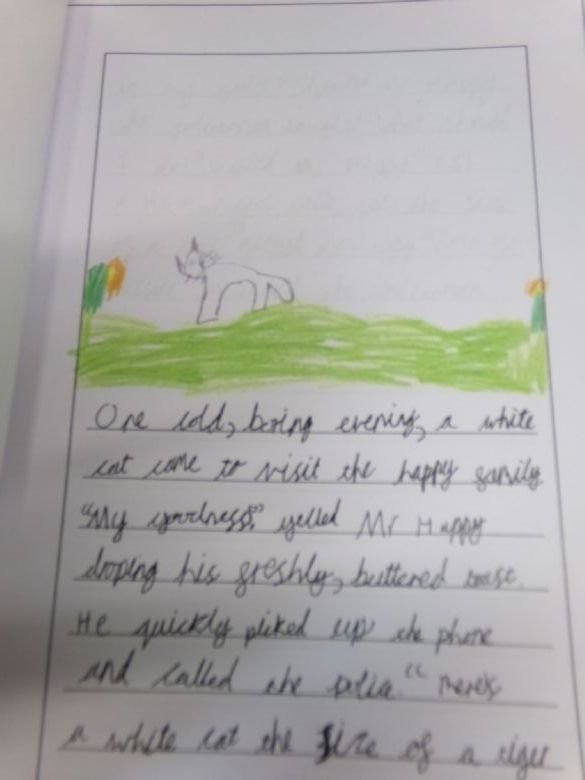 One cold, boring evening, a white
cat came to visit the happy family
"My goodness" yelled Mr Happy
droping his freshly, buttered toast.
He quickly picked up the phone
and called the police. "There's
a white cat the size of a tiger